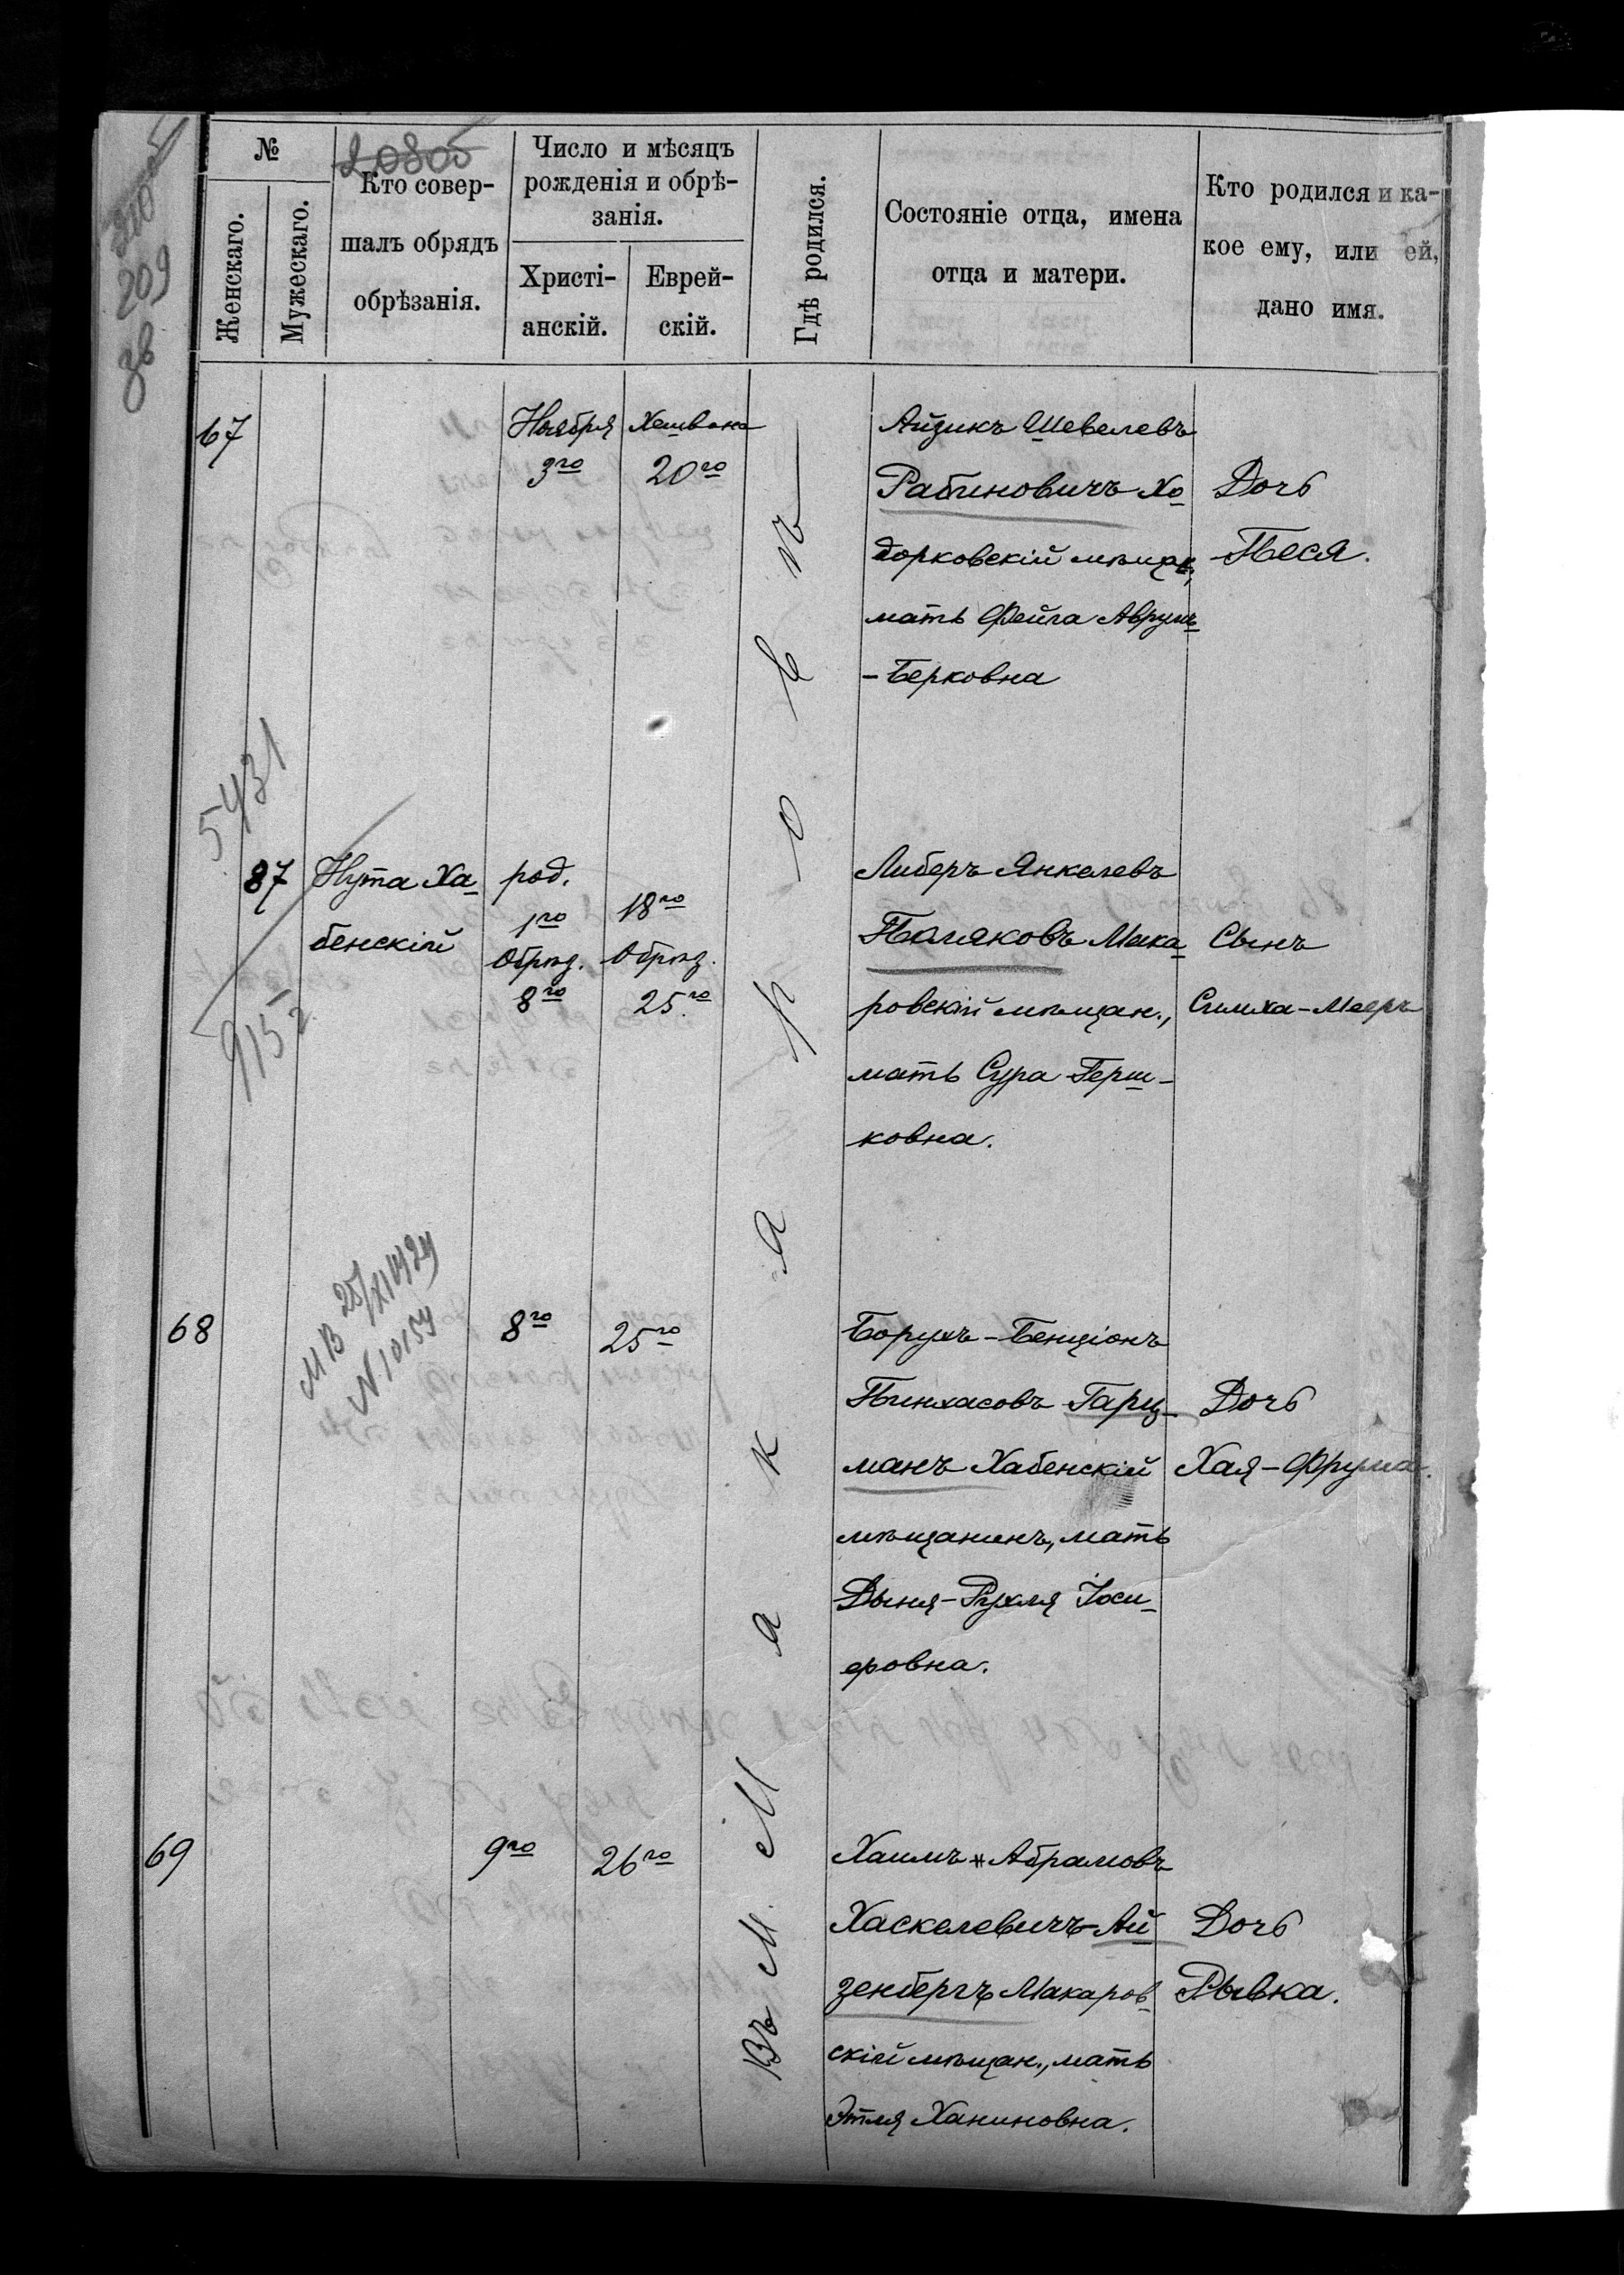 208 об
209
38
№
Женскаго.
Мужескаго.
Кто совер-
шалъ обрядъ
обрѣзанія.
Число и мѣсяцъ
рожденія и обрѣ-
занія.
Христі-
анскій.
Еврей-
скій.
Гдѣ родился.
Состояніе отца, имена
отца и матери.
Кто родился и ка-
кое ему, или ей,
дано имя.
Въ М. Макаровъ
67
Ноября
3го
Хешвана
20го
Айзикъ Шевелевъ
Рабиновичъ Хо
дорковскій мѣщан,
мать Фейга Аврум
-Берковна
Дочь
Песя.
5431
87
9152
Нута Ха
бенскій
род.
1го
Обрѣз.
8го
18го
Обрѣз.
25го
Либеръ Янкелевъ
Поляковъ Мака
ровскій мѣщан.,
мать Сура Герш-
ковна.
Сынъ
Симха-Мееръ
68
25/XI 1924
N 10154
8го
25го
Борухъ-Бенціонъ
Пинхасовъ Гарц-
манъ Хабенскій
мѣщанинъ, мать
Дыня-Рухля Іоси-
фовна.
Дочь
Хая-Фрума.
69
9го
26го
Хаимъ Абрамовъ
Хаскелевичъ-Ай
зенбергъ Макаров
скій мѣщан., мать
Этля Ханиновна.
Дочь
Рывка.